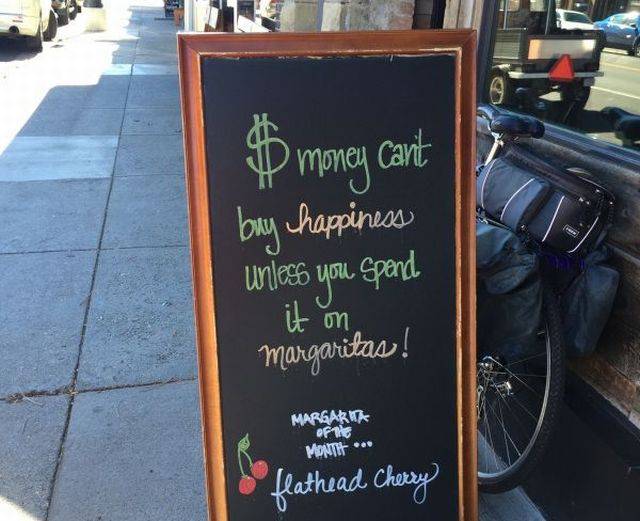 $ money can't
buy happiness
unless you spend
it on
margaritas!
MARGARITA
OF THE
MONTH ...
flathead Cherry